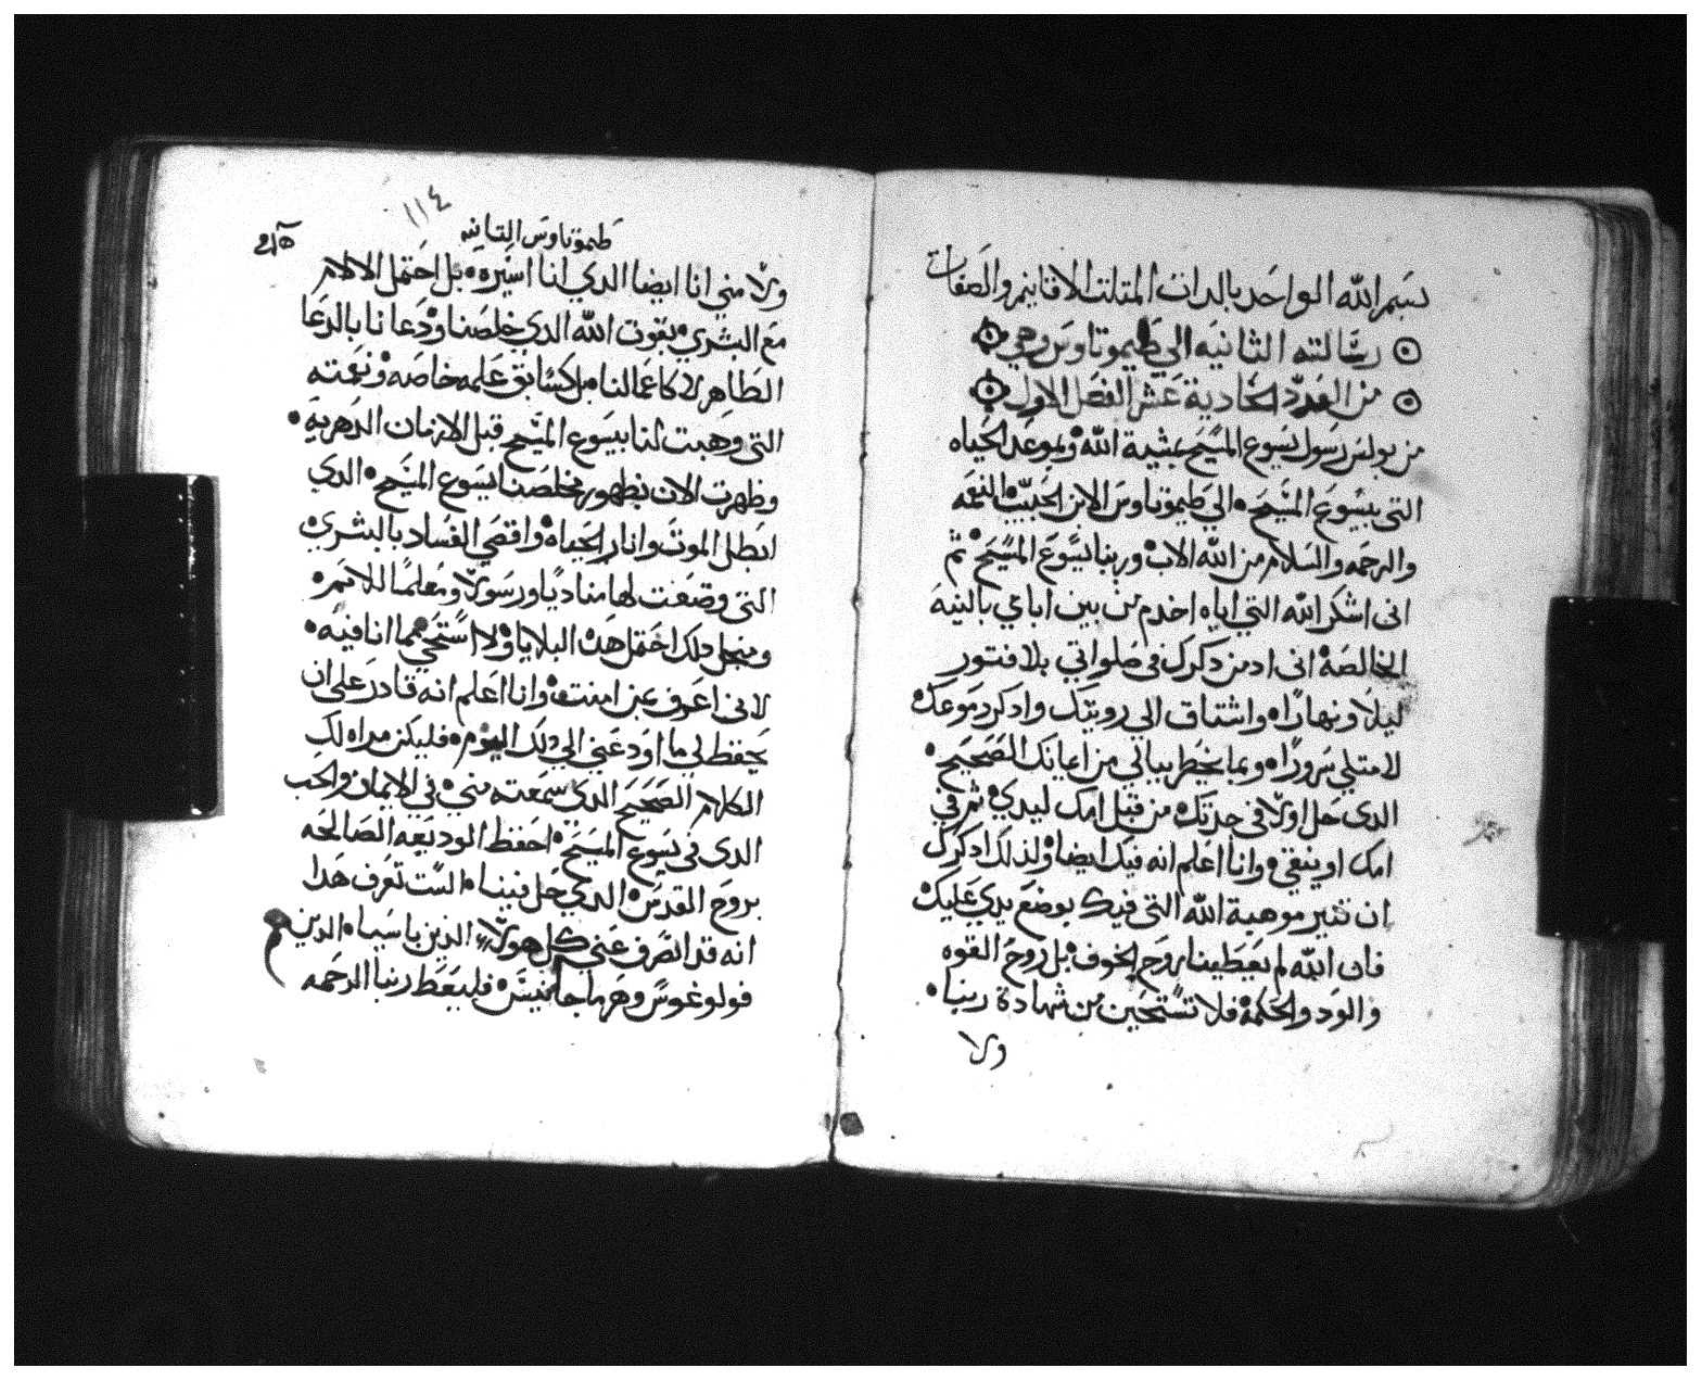 بسم الله الواحد بالدات المتلت الاقانيم والصفات
رسالته الثانيه الى طيموتاوس وهي
من العدد الحادية عشر الفصل الاول
من بولس رسول يسوع المسيح بمشية الله وبموعد الحياه
التى بيسوع المسيح الي طيموتاوس الابن الحبيب النعمه
والرحمه والسلام من الله الاب وربنا يسوع المسيح ثم
انى اشكر الله التي اياه اخدم من بين اباي بالنيه
الخالصة انى ادمن دكرك فى صلواتي بلا فتور
ليلا ونهارا واشتاق الي رويتك وادكر دموعك
لامتلي سرورا وبما يخطر ببالي من ايمانك الصحيح
الدى حل اولا فى جدتك من قبل امك ليدي ثم في
امك اوينقي وانا اعلم انه فيك ايضا ولذلك ادكرك
ان تثير موهبة الله التى فيك بوضع يدي عليك
فان الله لم يعطينا روح الخوف بل روح القوه
والود والحكمة فلا تستحين من شهادة ربنا
ولا
١١٤
طيموتاوس التانيه
ولا مني انا ايضا الدي انا اسيره بل احتمل الالام
مع البشري بقوت الله الدي خلصنا ودعانا بالدعا
الطاهر لا كاعمالنا بل كسابق علمه خاصه ونعمته
التى وهبت لنا بيسوع المسيح قبل الازمان الدهريه
وظهرت الان بظهور مخلصنا يسوع المسيح الدي
ابطل الموت وانار الحياه واقصي الفساد بالبشري
التى وضعت لها مناديا ورسولا ومعلما للامم
ومنجل دلك احتمل هده البلايا ولا استحي مما انا فيه
لانى اعرف بمن امنت وانا اعلم انه قادر على ان
يحفظ لي ما اودعني الي دلك اليوم فليكن مراه لك
الكلام الصحيح الدي سمعته مني في الايمان والحب
الدى فى يسوع المسيح احفظ الوديعه الصالحه
بروح القدس الدي حل فينا الست تعرف هدا
انه قد انصرف عني كل هولا الذين باسيا الدين هم
فولوغوس وهرماجانيس فليعط ربنا الرحمه